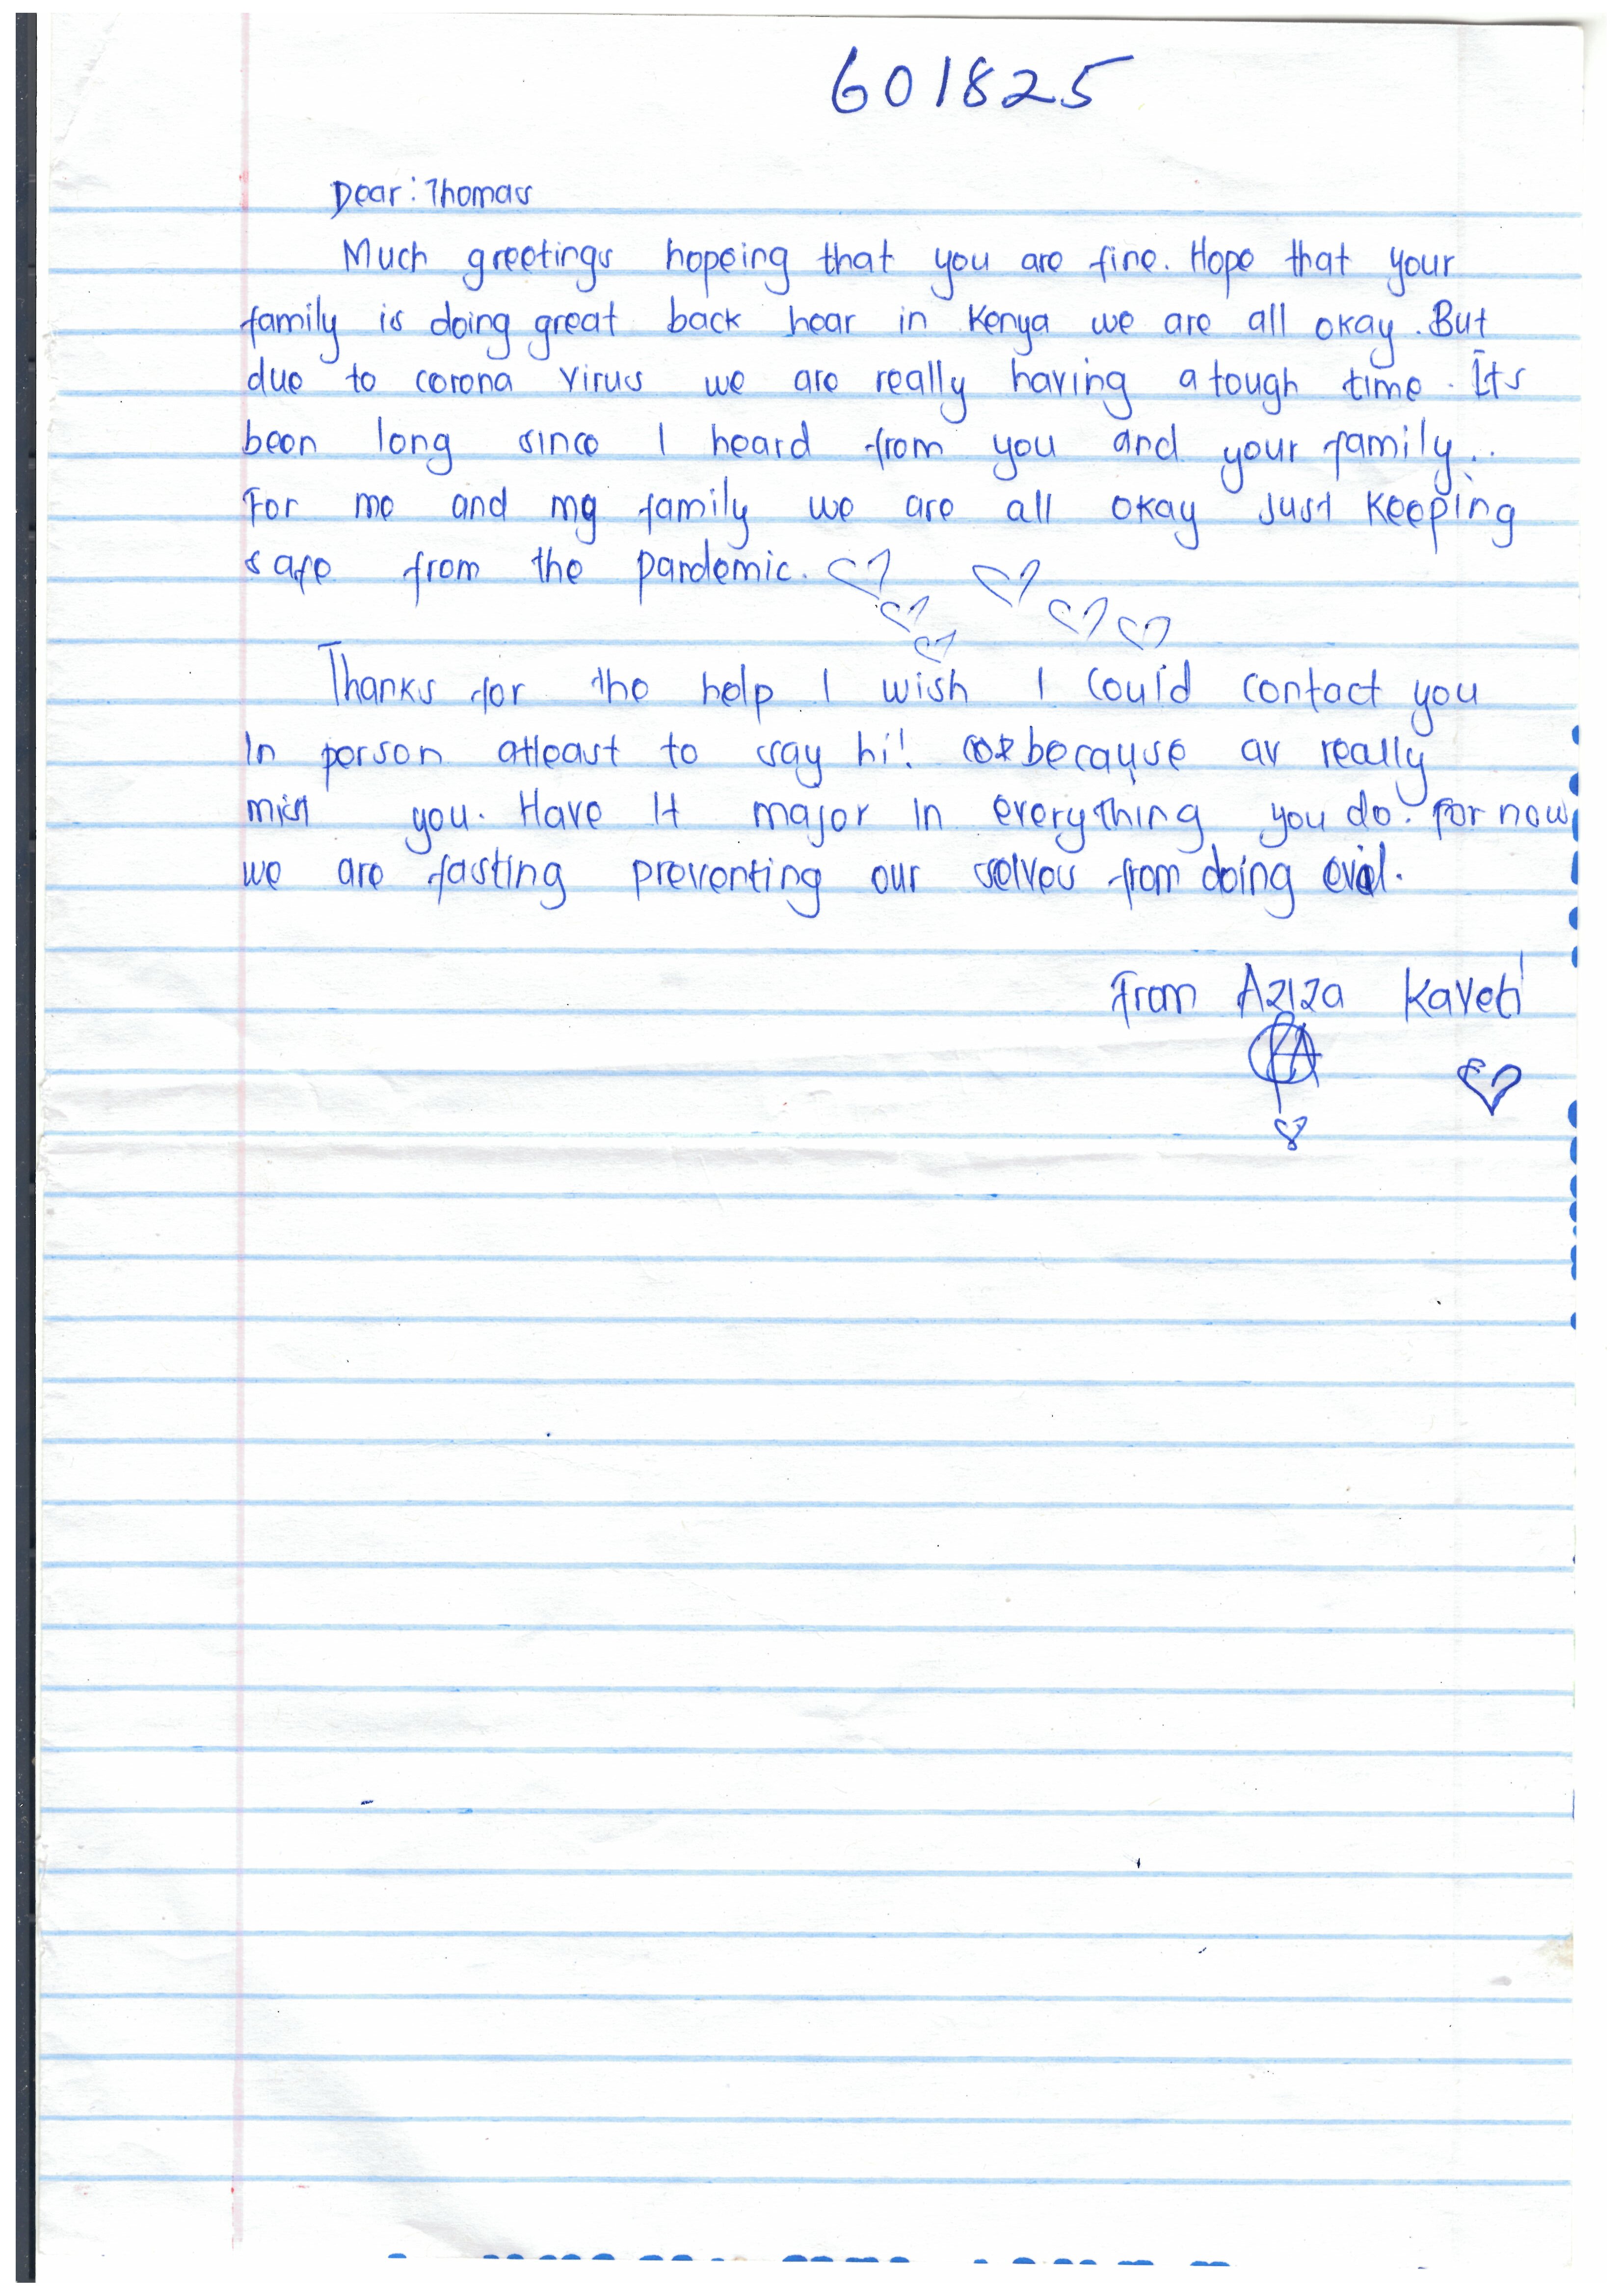 601825
Dear: Thomas
Much greetings hopeing that you are fine. Hope that your
family is doing great back hear in Kenya we are all okay. But
due to corona virus we are really having a tough time. Its
been long since I heard from you and your family..
For me and my family we are all okay just keeping
safe from the pandemic.
Thanks for the help I wish I could contact you
In person atleast to say hi! because as really
miss you. Have It major In everything you do. For now
we are fasting preventing our selves from doing evil.
From Aziza Kaveti